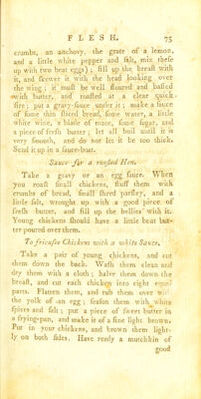 FLESH. 75
crumbs, an anchovy, the grate of a lemon,
and a little white pepper and salt, mix these
up with two beat eggs) : fill up the breast with
it, and skewer it with the head looking over
the wing ; it must be well floured and basted
with butter, and roasted at a clear quick
fire : put a gravy-sauce under it ; make a sauce
of some thin sliced bread, some water, a little
white wine, a blade of mace, some sugar, and
a piece of fresh butter ; let all boil until it is
very smooth, and do not let it be too thick.
Send it up in a sauce-boat.
Sauce for a roasted Hen.
Take a gravy or an egg sauce. When
you roast small chickens, stuff them with
crumbs of bread, small shred parsley, and a
little salt, wrought up with a good piece of
fresh butter, and fill up the bellies with it.
Young chickens should have a little beat but-
ter poured over them.
To fricasse Chickens with a white Sauce.
Take a pair of young chickens, and cut
them down the back. Wash them clean and
dry them with a cloth ; halve them down the
breast, and cut each chicken into eight equal
parts. Flatten them, and rub them over with
the yolk of an egg ; season them with white
spices and salt ; put a piece of sweet butter in
a frying-pan, and make it of a fine light brown.
Put in your chickens, and brown them light-
ly on both sides. Have ready a mutchkin of
good